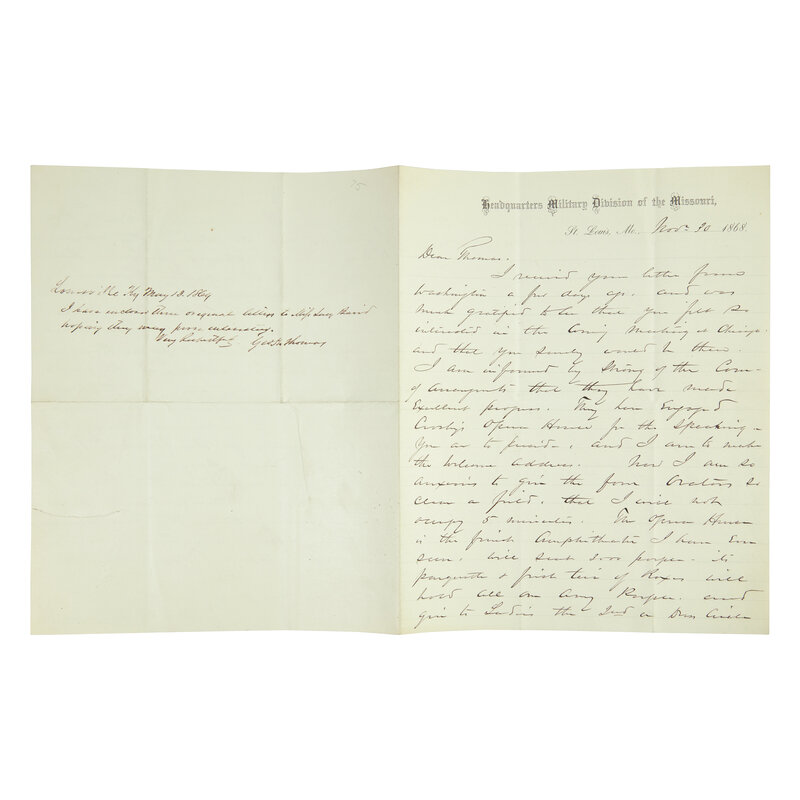 75
Louisville Ky May 13. 1869
I have enclosed three original letters to Miss
hoping they may prove interesting.
Very Respectfully Geo. H. Thomas
Headquarters Military Division of the Missouri,
St. Louis, Mo. Nov. 30 1868.
Dear Thomas.
I received your letter from
Washington a few days ago. and was
much gratified to see that you felt so
interested in the Coming Meeting at Chicago.
and that you surely would be there.
I am informed by Strong of the Com-
of Arrangements that they have made
Excellent progress. They have Engaged
Crosby's Opera House for the speaking -
You are to preside, and I am to make
the Welcome Address. Now I am so
anxious to give the four Orators so
clear a field, that I will not
occupy 5 minutes. The Opera House
is the finest Amphitheatre I have Ever
seen. will seat people. its
parquette & first tier of Boxes will
hold all our Army People. and
give to Ladies the 2nd or Dress Circle